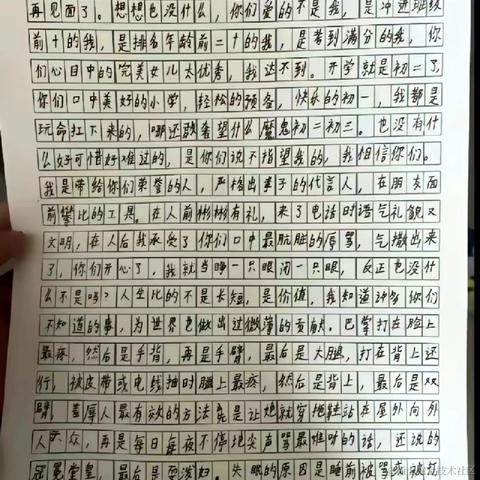 再见面了。想想也没什么，你们爱的不是我，是冲进班级
前十的我，是排名年龄前二十的我，是考到满分的我，你
们心目中的完美女儿太优秀，我达不到。开学就是初二了，
你们口中美好的小学，轻松的预备，快乐的初一，我都是
玩命扛下来的，哪还敢希望什么魔鬼初二初三。也没有什
么好可惜好难过的，是你们说不指望我的，我相信你们。
我是带给你们荣誉的人，严格出事子的代言人，在朋友面
前攀比的工具。在人前彬彬有礼，来了电话时语气礼貌又
文明，在人后我承受了你们口中最肮脏的辱骂，气撒出来
了，你们开心了，我就当睁一只眼闭一只眼，反正也没什
么不是吗？人生比的不是长短，是价值，我知道许多你们
不知道的事，为世界也做出过微薄的贡献。巴掌打在脸上
最疼，然后是手背，再是手臂，最后是大腿，打在背上还
行，被皮带或电线抽时腿上最疼，然后是背上，最后是双
臂，羞辱人最有效的方法竟是让她就穿拖鞋站在屋外向外
人示众，再是每日每夜不停地尖声骂最难听的话，还说的
冠冕堂皇，最后是耍泼妇。失眠的原因是睡前被骂或被打